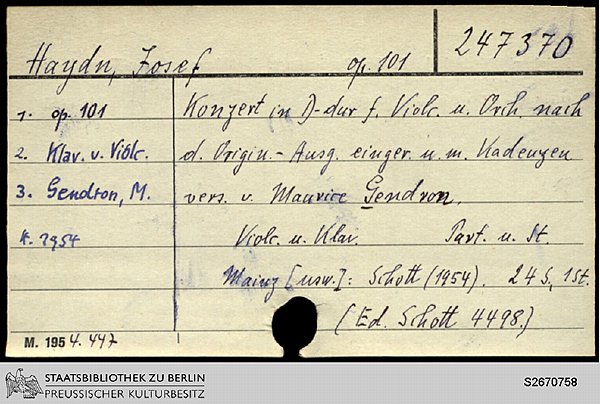 Haydn, Josef op. 101 247370
1. op. 101 Konzert in D-dur f. Violc. u. Orch. nach
2. Klav. v. Violc. d. Origin.-Ausg. einger. u. m. Kadenzen
3. Gendron, M. vers. v. Maurice Gendron.
K. 1954 Violc. u. Klav. Part. u. St.
Mainz [usw.]: Schott (1954). 24 S., 1 St.
(Ed. Schott 4498.)
M. 1954. 447
STAATSBIBLIOTHEK ZU BERLIN
PREUSSISCHER KULTURBESITZ
S2670758